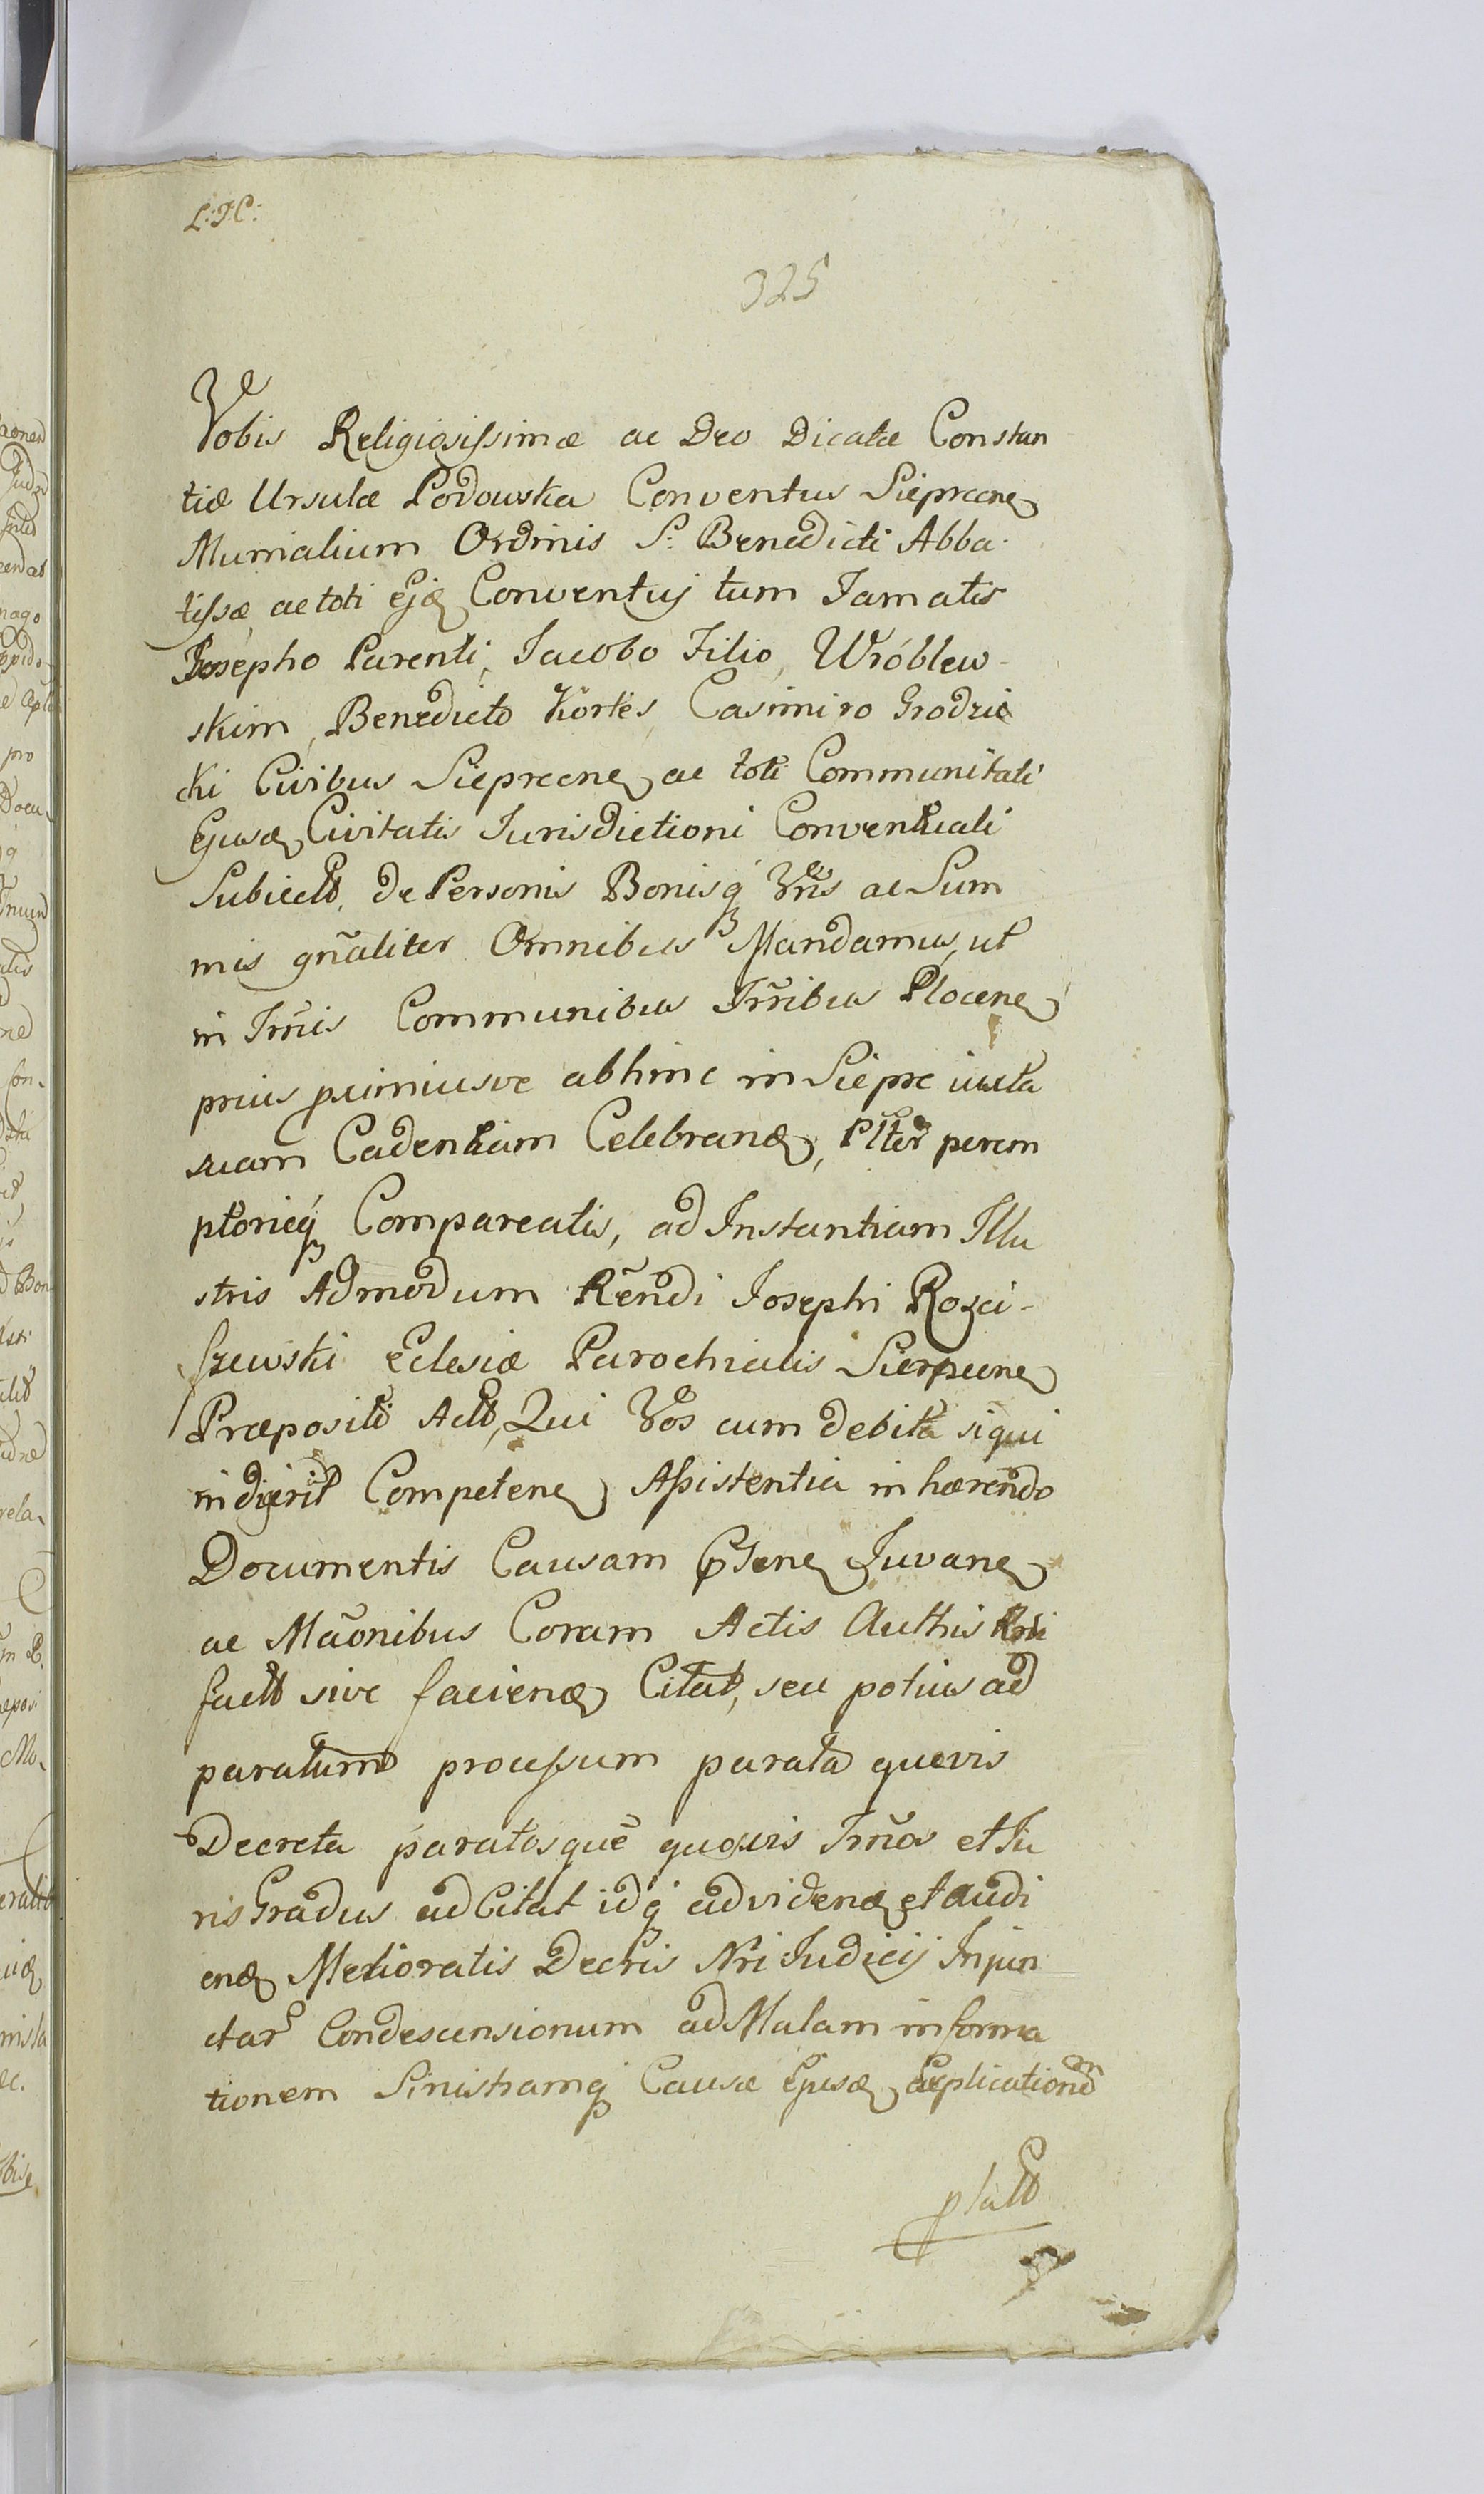 L:I:C:
325
Vobis Religiosissimæ ac Deo Dicatæ Constan
tiæ Ursulæ Podowska Conventus Sieprcen
Munialium Ordinis S: Benedicti Abba-
tissæ ac toti Ejd Conventuj tum Famatis
Josepho Parenti, Jacobo Filio, Wróblew-
skim, Benedicto Kortes, Casimiro Grodzic
ki Civibus Sieprcen ac toti Communitati
Ejusd Civitatis Jurisdictioni Conventuali
Subiect, de Personis Bonisq Vris ac Sum
mis gñaliter Omnibus Mandamus, ut
in Trm̃is Communibus Trr̃ibus Plocen
prius primiusve abhinc in Sieprc iuxta
suam Cadentiam Celebrand, Plter perem
ptorieq Compareatis, ad Instantiam Illu
stris Admodum Rẽndi Josephi Rozci-
szewski Eclesiæ Parochialis Sierpcen
Præpositi Act, Qui Vos cum debita siqui
indigerit Competen Assistentia inhærendo
Documentis Causam Pten Juvan
ac Mãonibus Coram Actis Authis
fact sive faciend Citat, seu potius ad
paratum processum parata quevis
Decreta paratosque quosvis Trm̃os et Ju
ris Gradus ad Citat idq ad vidend et audi
end Melioratis Decris Nri Judicij Injun
ctar Condescensionum ad Malam informa
tionem Sinistramq Causæ Ejusd Explicationem